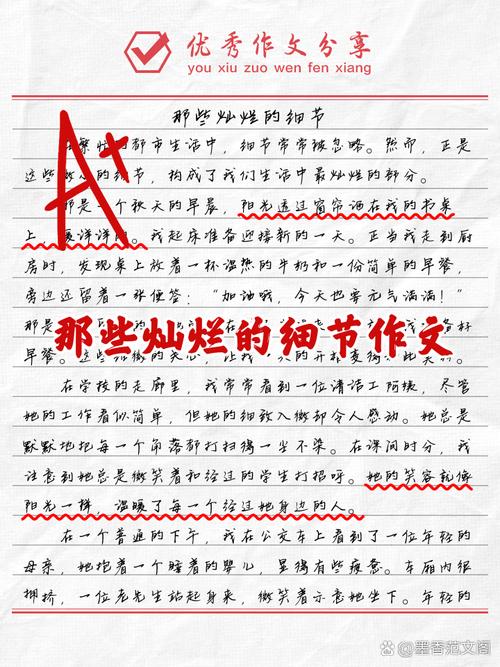 优秀作文分享
you xiu zuo wen fen xiang
那些灿烂的细节
A+
都市生活中，细节常常被忽略。然而，正是
这些 的细节，构成了我们生活中最灿烂的部分。
那是 个秋天的早晨，阳光透过窗帘洒在我的书桌
上， 暖洋洋的。我起床准备迎接新的一天。正当我走到厨
房时，发现桌上放着一杯温热的牛奶和一份简单的早餐，
旁边还留着一张便签：“加油哦，今天也要元气满满！”
那是
那些灿烂的细节作文
早餐。
在学校的走廊里，我常常看到一位清洁工阿姨，尽管
她的工作看似简单，但她的细致入微却令人感动。她总是
默默地把每一个角落都打扫得一尘不染。在课间时分，我
注意到她总是微笑着和经过的学生打招呼。她的笑容就像
阳光一样，温暖了每一个经过她身边的人。
在一个普通的下午，我在公交车上看到了一位年轻的
母亲，她抱着一个睡着的婴儿，显得有些疲惫。车厢内很
拥挤，一位老先生站起身来，微笑着示意她坐下。年轻的
@墨香范文阁